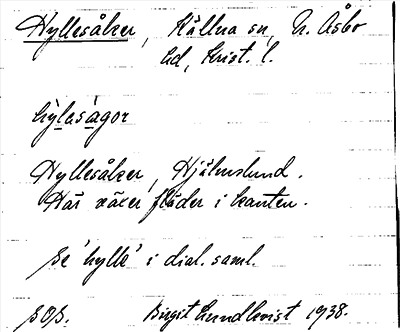 Hyllesåker, Källna sn, N. Åsbo
hd, Krist. l.
hỳlesàgor
Hyllesåker, Hjälmslund.
Här växer fläder i kanten.
Se 'hylle' i dial. saml.
SOS. Birgit Lundkvist 1938.